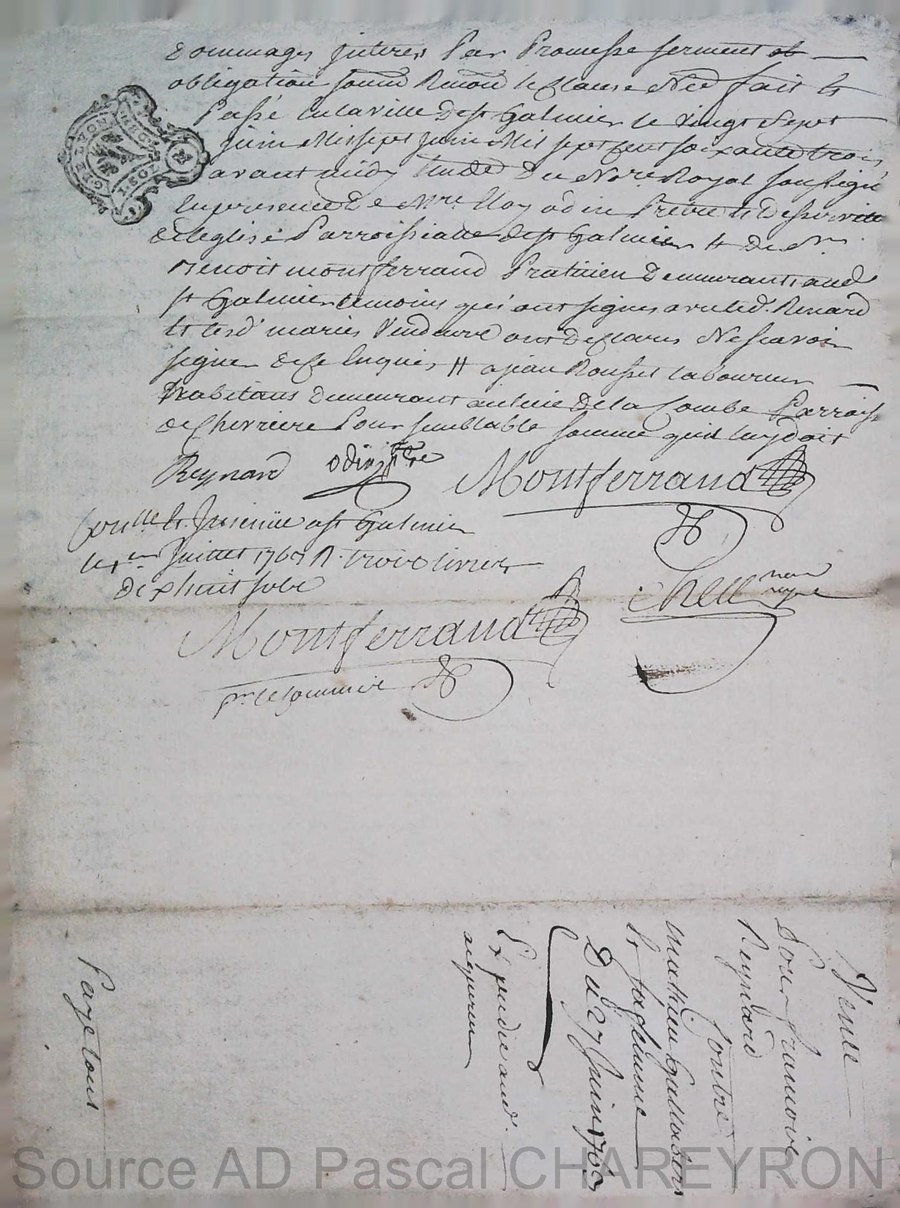 dommages interes Par Promesse serment et
obligation soumis Renon et Clause Ned fait et
Passé en la ville de st Galmier le vingt Sept
Juin Mil sept Juin Mil sept cent soixante trois
avant midy Pardt du Nore Royal soussigné
En presence de Mre odin Pretre et Desservite
de leglise Parroissialle de st Galmier et de Sr
Benoit montferrand Praticien demeurants aud
st Galmier temoins qui ont signes avec led. Renard
et lesd maries Vendeurs ont declares Ne scavoir
signer de ce Enquis # a jean Rousset laboureur
habitans demeurant au lieu de la Combe Parroisse
de Chevriere Pour semblable somme quil luy doit
Reynard odin ptre Montferrand
Conlle et Insinüé a st Galmier
le 1er Juillet 1763 R. trois livres
dixhuit sols
Montferrand
pr le commis
Vente
Pour francoise
Reynard
Contre
mathieu
et sa femme
Du 27 Juin 1763
Expedié aud.
acquereur
Paye tout
GEN LYON
Source AD Pascal CHAREYRON